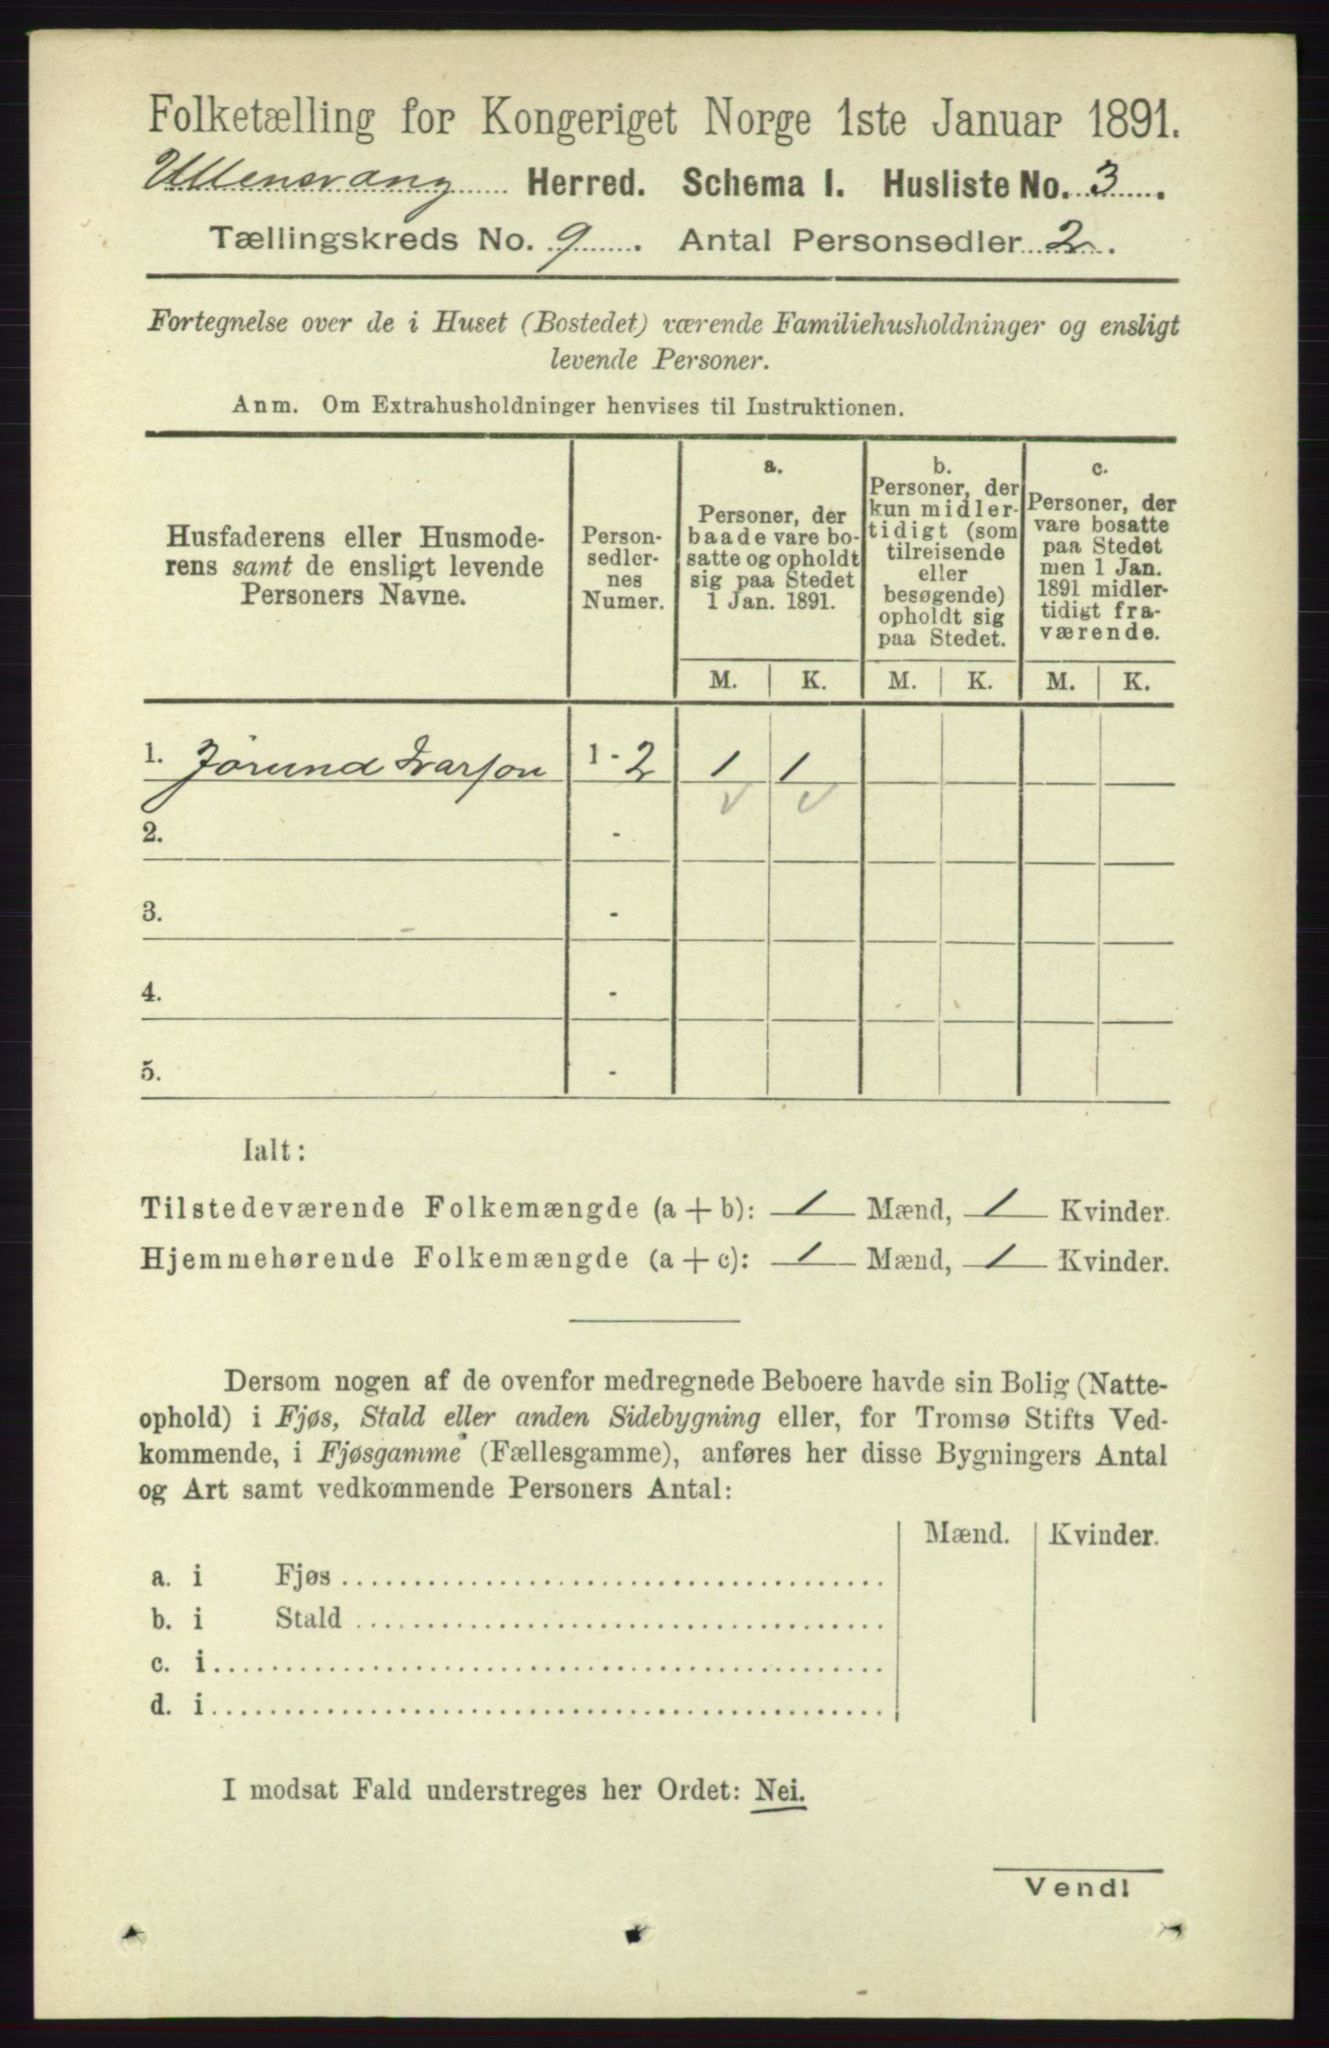 Folketælling for Kongeriget Norge 1ste Januar 1891.
Ullensvang Herred. Schema I. Husliste No. 3.
Tællingskreds No. 9. Antal Personsedler 2.
Fortegnelse over de i Huset (Bostedet) værende Familiehusholdninger og ensligt
levende Personer.
Anm. Om Extrahusholdninger henvises til Instruktionen.
Husfaderens eller Husmode-
rens samt de ensligt levende
Personers Navne.
Person-
sedler-
nes
Numer.
a.
Personer, der
baade vare bo-
satte og opholdt
sig paa Stedet
1 Jan. 1891.
b.
Personer, der
kun midler-
tidigt (som
tilreisende
eller
besøgende)
opholdt sig
paa Stedet.
c.
Personer, der
vare bosatte
paa Stedet
men 1 Jan.
1891 midler-
tidigt fra-
værende.
M. K. M. K. M. K.
1. Jørund Ivarson 1 - 2 1 1
2. -
3. -
4. -
5. -
Ialt:
Tilstedeværende Folkemængde (a + b): 1 Mænd, 1 Kvinder.
Hjemmehørende Folkemængde (a + c): 1 Mænd, 1 Kvinder.
Dersom nogen af de ovenfor medregnede Beboere havde sin Bolig (Natte-
ophold) i Fjøs, Stald eller anden Sidebygning eller, for Tromsø Stifts Ved-
kommende, i Fjøsgamme (Fællesgamme), anføres her disse Bygningers Antal
og Art samt vedkommende Personers Antal:
Mænd. Kvinder.
a. i Fjøs
b. i Stald
c. i
d. i
I modsat Fald understreges her Ordet: Nei.
Vend!